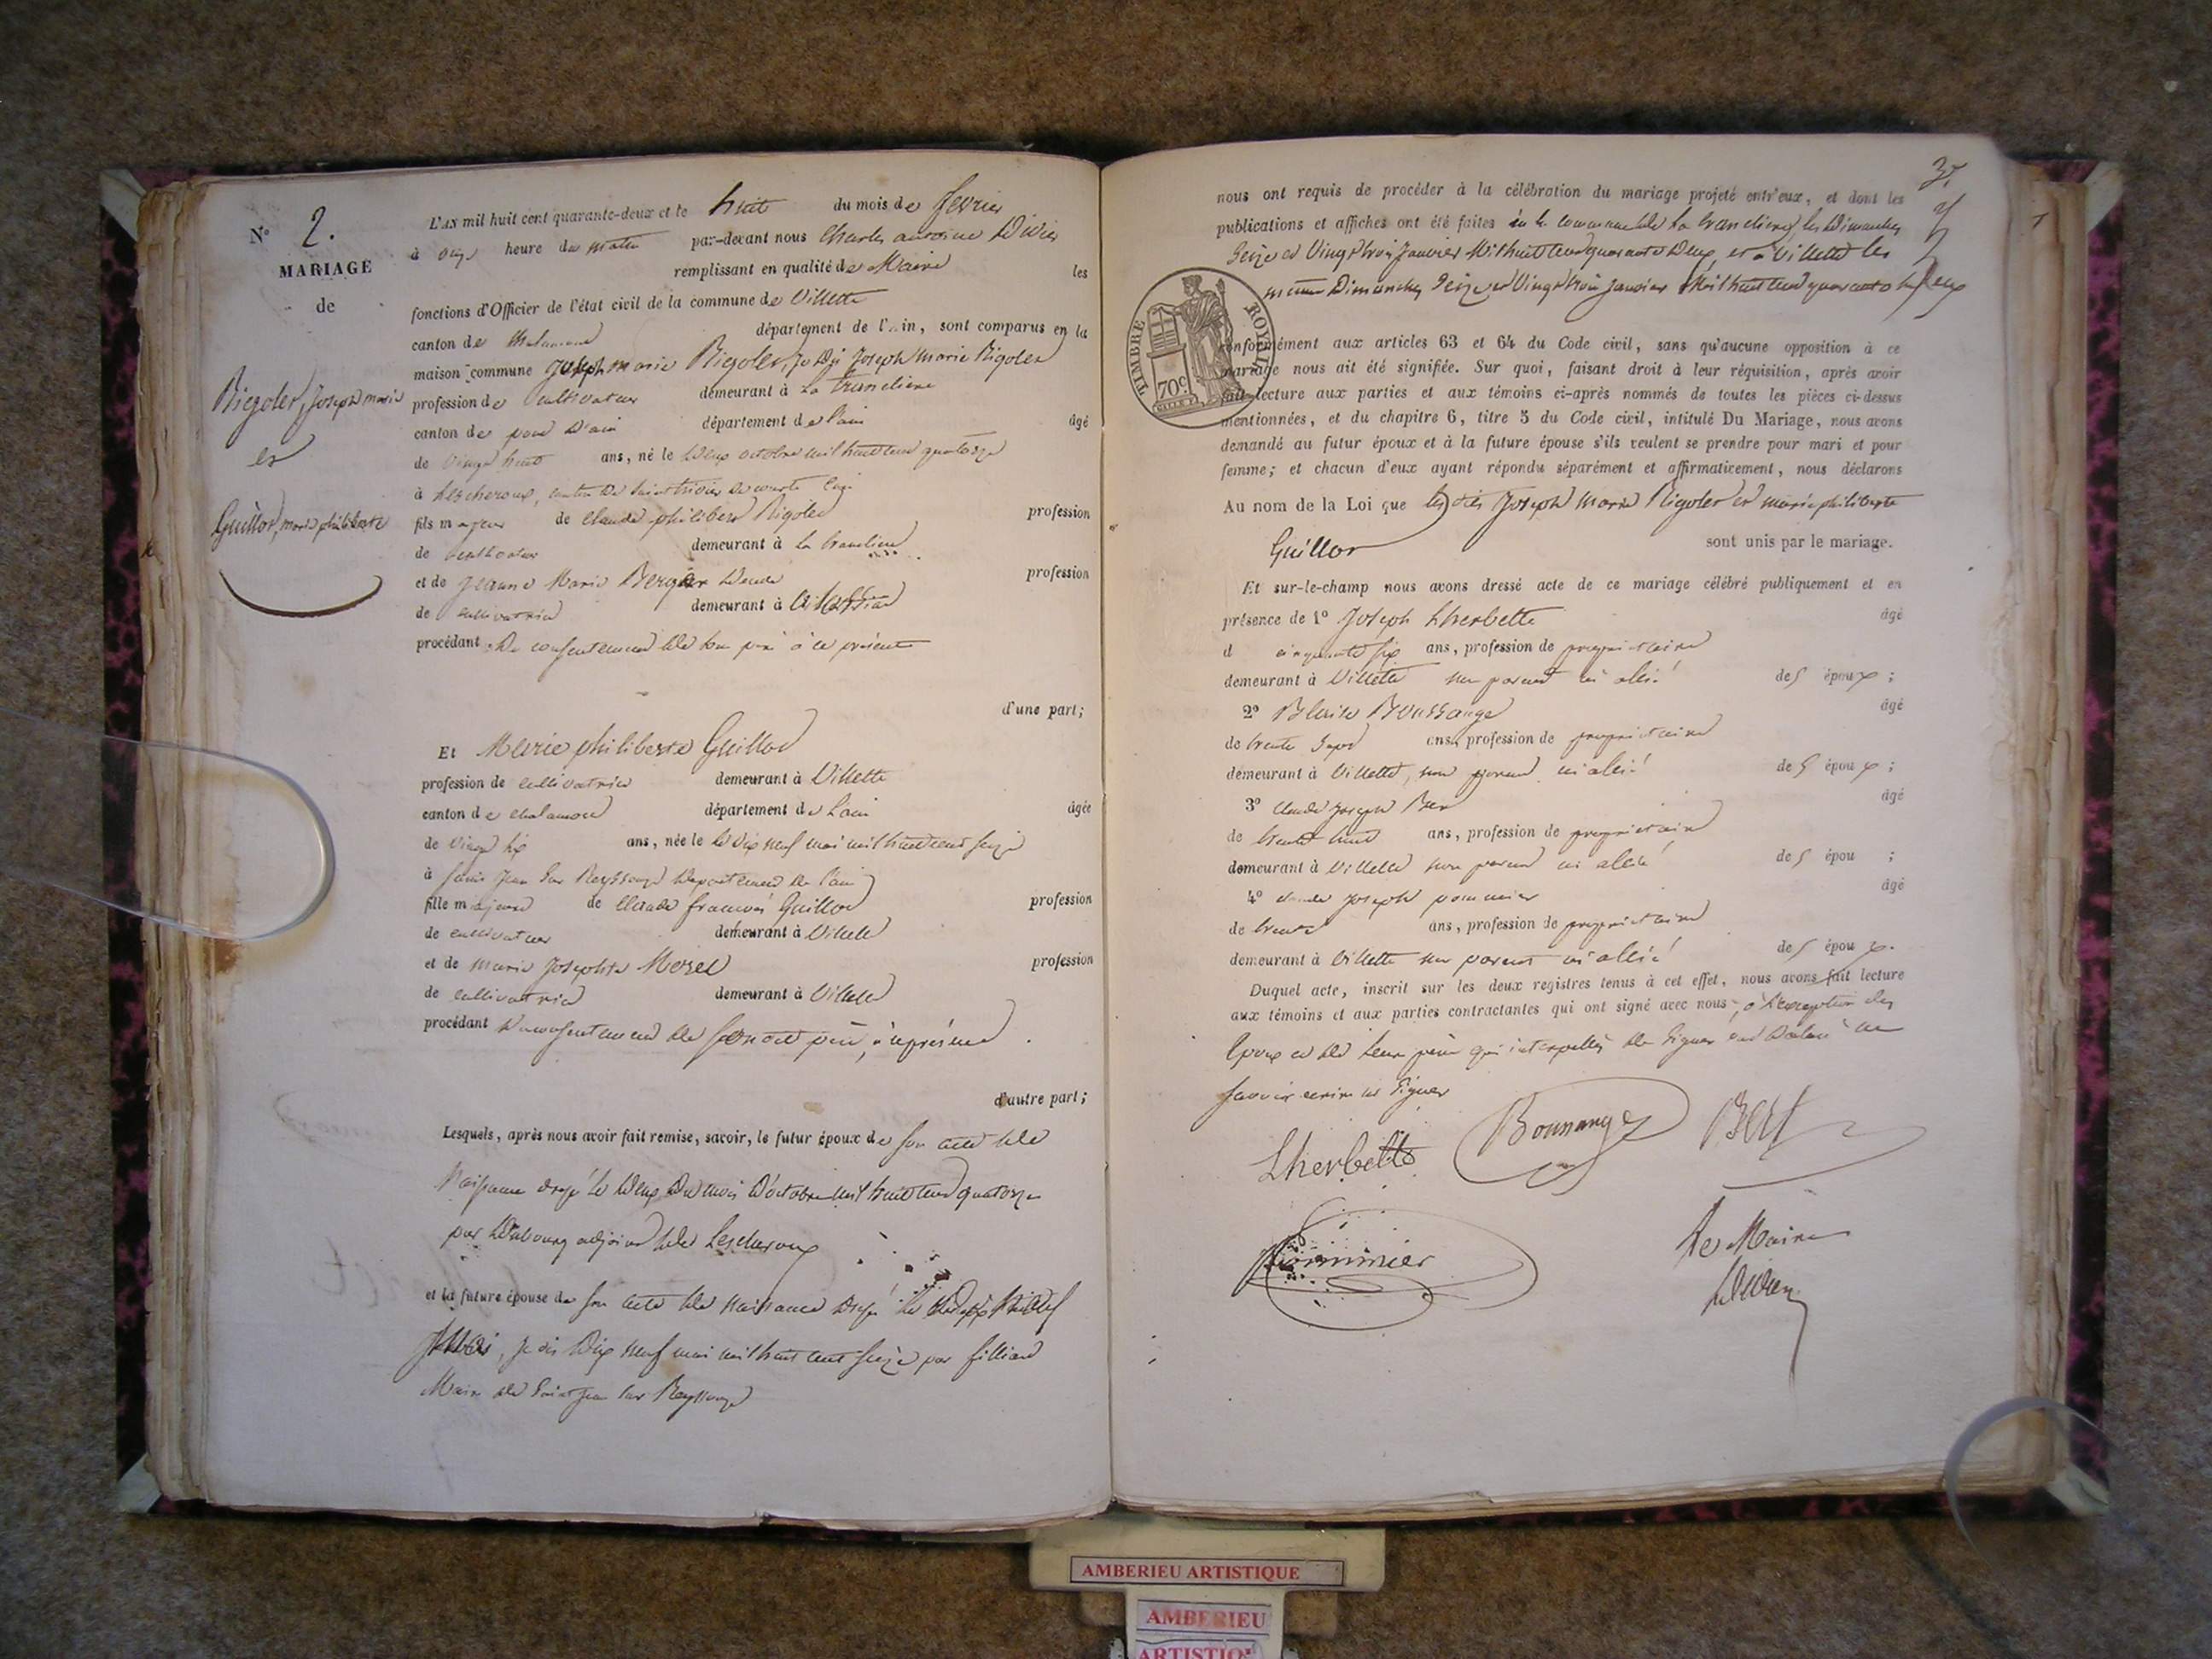 N° 2.
MARIAGE
de
Rigolet, Joseph marie
et
Guillot, marie philiberte
L'AN mil huit cent quarante-deux et le huit du mois de février
à onze heure du matin par-devant nous Charles antoine
remplissant en qualité de Maire les
fonctions d'Officier de l'état civil de la commune de Villette
canton de Chalamont département de l'Ain, sont comparus en la
maison commune Joseph marie Rigolet, je dis Joseph Marie Rigolet
profession de cultivateur demeurant à La tranclière
canton de pont d'ain département de l'ain âgé
de vingt huit ans, né le deux octobre mil huit cent quatorze
à Lescheroux, canton de Saint trivier de courte
fils majeur de Claude philibert Rigolet profession
de cultivateur demeurant à la tranclière
et de Jeanne Marie profession
de cultivatrice demeurant à
procédant du consentement de son père à ce présent
d'une part;
Et Marie philiberte Guillot
profession de cultivatrice demeurant à Villette
canton de chalamont département de l'ain âgée
de vingt six ans, née le dix neuf mai mil huit cent seize
à Saint Jean sur Reyssouze département de l'ain
fille majeure de Claude françois Guillot profession
de cultivateur demeurant à Villette
et de marie Josephte Morel profession
de cultivatrice demeurant à Villette
procédant du consentement de père, à ce présent.
d'autre part;
Lesquels, après nous avoir fait remise, savoir, le futur époux de son acte de
Naissance dressé le deux du mois d'octobre mil huit cent quatorze
par Dubourg adjoint de Lescheroux
et la future épouse de son acte de naissance dressé le
je dis dix neuf mai mil huit cent seize par
Maire de Saint Jean sur Reyssouze
nous ont requis de procéder à la célébration du mariage projeté entr'eux, et dont les
publications et affiches ont été faites en la commune de la tranclière, les Dimanches
Seize et Vingt trois Janvier Mil huit cent quarante Deux, et à Villette les
mêmes Dimanches Seize et Vingt trois janvier Mil huit cent quarante Deux
TIMBRE ROYAL
70 c.
conformément aux articles 63 et 64 du Code civil, sans qu'aucune opposition à ce
mariage nous ait été signifiée. Sur quoi, faisant droit à leur réquisition, après avoir
fait lecture aux parties et aux témoins ci-après nommés de toutes les pièces ci-dessus
mentionnées, et du chapitre 6, titre 5 du Code civil, intitulé Du Mariage, nous avons
demandé au futur époux et à la future épouse s'ils veulent se prendre pour mari et pour
femme; et chacun d'eux ayant répondu séparément et affirmativement, nous déclarons
Au nom de la Loi que les dits Joseph Marie Rigolet et marie philiberte
Guillot sont unis par le mariage.
Et sur-le-champ nous avons dressé acte de ce mariage célébré publiquement et en
présence de 1° Joseph Lherbette âgé
d cinquante six ans, profession de propriétaire
demeurant à Villette non parent ni allié des époux;
2° Blaise Boussange âgé
de trente sept ans, profession de propriétaire
demeurant à Villette, non parent ni allié des époux;
3° Claude Joseph Bert âgé
de trente huit ans, profession de propriétaire
demeurant à Villette non parent ni allié des épou ;
4° Claude Joseph pommier âgé
de trente ans, profession de propriétaire
demeurant à Villette non parent ni allié des époux.
Duquel acte, inscrit sur les deux registres tenus à cet effet, nous avons fait lecture
aux témoins et aux parties contractantes qui ont signé avec nous, à l'exception des
époux et de leurs pères qui interpellés de signer ont déclaré ne
savoir écrire ni signer
Lherbette Bert
Pommier Le Maire
AMBERIEU ARTISTIQUE
AMBERIEU
ARTISTIQ